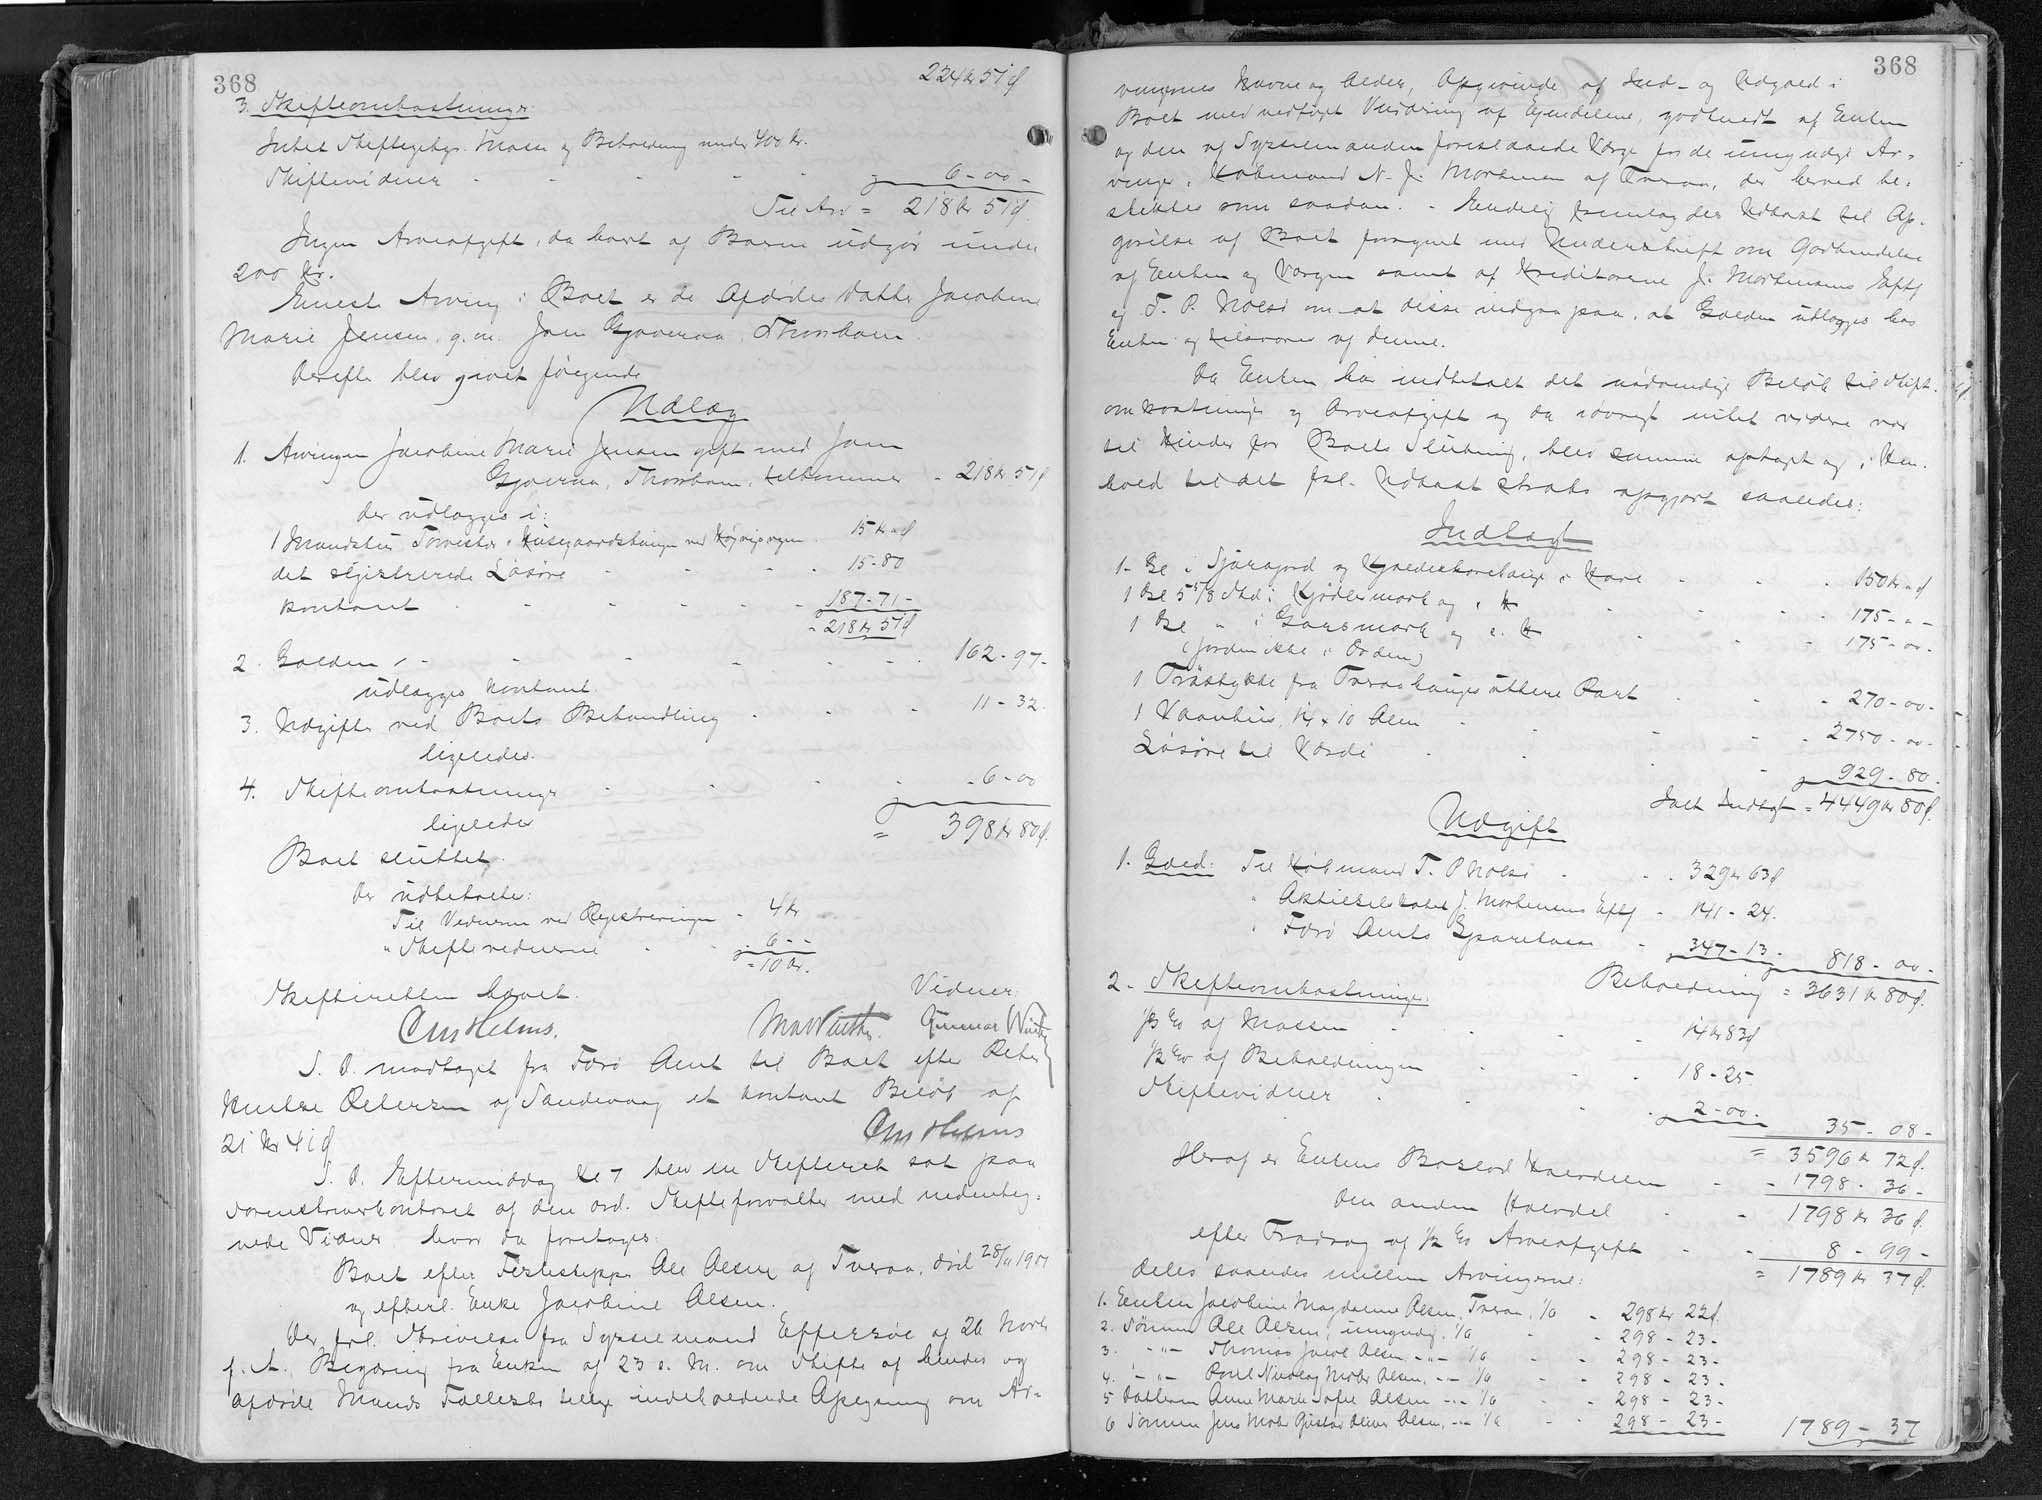 368
224 Kr 51 Ø
3. Skifteomkostninger:
Intet Skiftegebyr. Masse og Beholdning under 400 Kr.
Skiftevidner - - - - 6 - 00 -
Til Arv = 218 Kr 51 Ø.
Ingen Arveafgift, da hvert af Børn udgør under
200 Kr.
Eneste Arving i Boet er de Afdødes Datter Jacobine
Marie Jensen, g. m. Joen Gjoveraa, Thorshavn.
Derefter blev gjort følgende
Udlæg
1. Arvingen Jacobine Marie Jensen gift med Joen
Gjoveraa, Thorshavn, tilkommer - 218 Kr 51 Ø
der udlægges i:
1 Mandstue Tørvested i Husegaardshaugen ved Højvigsvejen 15 Kr - Ø
det registrerede Løsøre - - - - 15 - 80
kontant - - - - - - 187 - 71 -
= 218 Kr 51 Ø
2. Gælden - - - - - - 162 - 97 -
udlægges kontant.
3. Udgifter ved Boets Behandling - - - 11 - 32.
ligeledes.
4. Skifteomkostninger - - - - 6 - 00
ligeledes
= 398 Kr 80 Ø.
Boet sluttet.
Der udbetaltes:
Til Vidnerne ved Registreringen - 4 Kr
" Skiftevidnerne - - 6 - -
= 10 Kr.
Skifteretten hævet.
Vidner:
Gunnar
S. D. modtaget fra Færø Amt til Boet efter Peter
Petersen af Sandevaag et kontant Beløb af
21 Kr 41 Ø
S. D. Eftermiddag Kl 7 blev en Skifteret sat paa
Sorenskriverkontoret af den ord. Skifteforvalter med nedenteg-
nede Vidner, hvor da foretoges:
Boet efter Ole Olsen af Tveraa, død 28/11 1901
og efterl. Enke Jacobine Olsen.
Der frl. Skrivelse fra Sysselmand Effersøe af 26 Novbr
f. A. Begæring fra Enken af 23 s. M. om Skifte af hendes og
afdøde Mands Fællesbo tillige indeholdende Opgivning om Ar-
368
vingernes Navne og Alder, Opgivende af Ind- og Udgæld i
Boet med vedføjet Vurdering af Ejendelene, godkendt af Enken
og den af Sysselmanden foreslaaede Værge for de umyndige Ar-
vinger, Købmand N. J. Mortensen af Tveraa, der herved be-
skikkes som saadan. - Endelig fremlagdes Udkast til Op-
gørelse af Boet forsynet med Underskrift om Godkendelse
af Enken og Værgen samt af Kreditorerne J. Mortensens Eftf
og T. P. Nolsø om at disse indgaa paa, at Gælden udlægges hos
Enken og tilsvares af denne.
Da Enken har indbetalt det nødvendige Beløb til Skifte-
omkostninger og Arveafgift og da iøvrigt intet videre var
til Hinder for Boets Slutning, blev samme optaget og i Hen-
hold til det frl. Udkast straks opgjort saaledes:
Indtægt
1 - Ge i Sjøragord og - - - 150 Kr - Ø
175 - " -
175 - 00 -
(Jorden ikke i Orden)
1 Træstykke fra Tveraahauges uttere Part - - 270 - 00 -
1 Vaanhus, 14 x 10 Alen - - - - 2750 - 00 -
Løsøre til Værdi - - - - 929 - 80 -
Ialt Indtægt = 4449 Kr 80 Ø.
Udgift
1. Gæld: Til Købmand T. P. Nolsø - - - 329 Kr 63 Ø
" Aktieselskabet J. Mortensens Eftf - 141 - 24.
" Færø Amts Sparekasse - 347 - 13 - 818 - 00 -
Beholdning = 3631 Kr 80 Ø.
2. Skifteomkostninger:
1/3 % af Massen - - - 14 Kr 83 Ø
1/2 % af Beholdningen - - - 18 - 25.
Skiftevidner - - - - 2 - 00 -
35 - 08 -
= 3596 Kr 72 Ø.
Heraf er Enkens Boslod Halvdelen - - 1798 - 36 -
Den anden Halvdel - - 1798 Kr 36 Ø.
efter Fradrag af 1/2 % Arveafgift - - 8 - 99 -
= 1789 Kr 37 Ø.
deles saaledes mellem Arvingerne:
1. Enken Jacobine Magdalene Olsen, Tveraa, 1/6 - 298 Kr 22 Ø.
2. Sønnen Ole Olsen, umyndig, 1/6 - - 298 - 23 -
3. - " - Thomas Jacob Olsen, - " - 1/6 - - 298 - 23 -
4. - " - Poul Nicolaj Mohr Olsen, - " - 1/6 - - 298 - 23 -
5 Datteren Anne Marie Sofie Olsen - " - 1/6 - - 298 - 23 -
6 Sønnen Jens Mohr Gustav Oliver Olsen, - " - 1/6 - - 298 - 23 -
1789 - 37